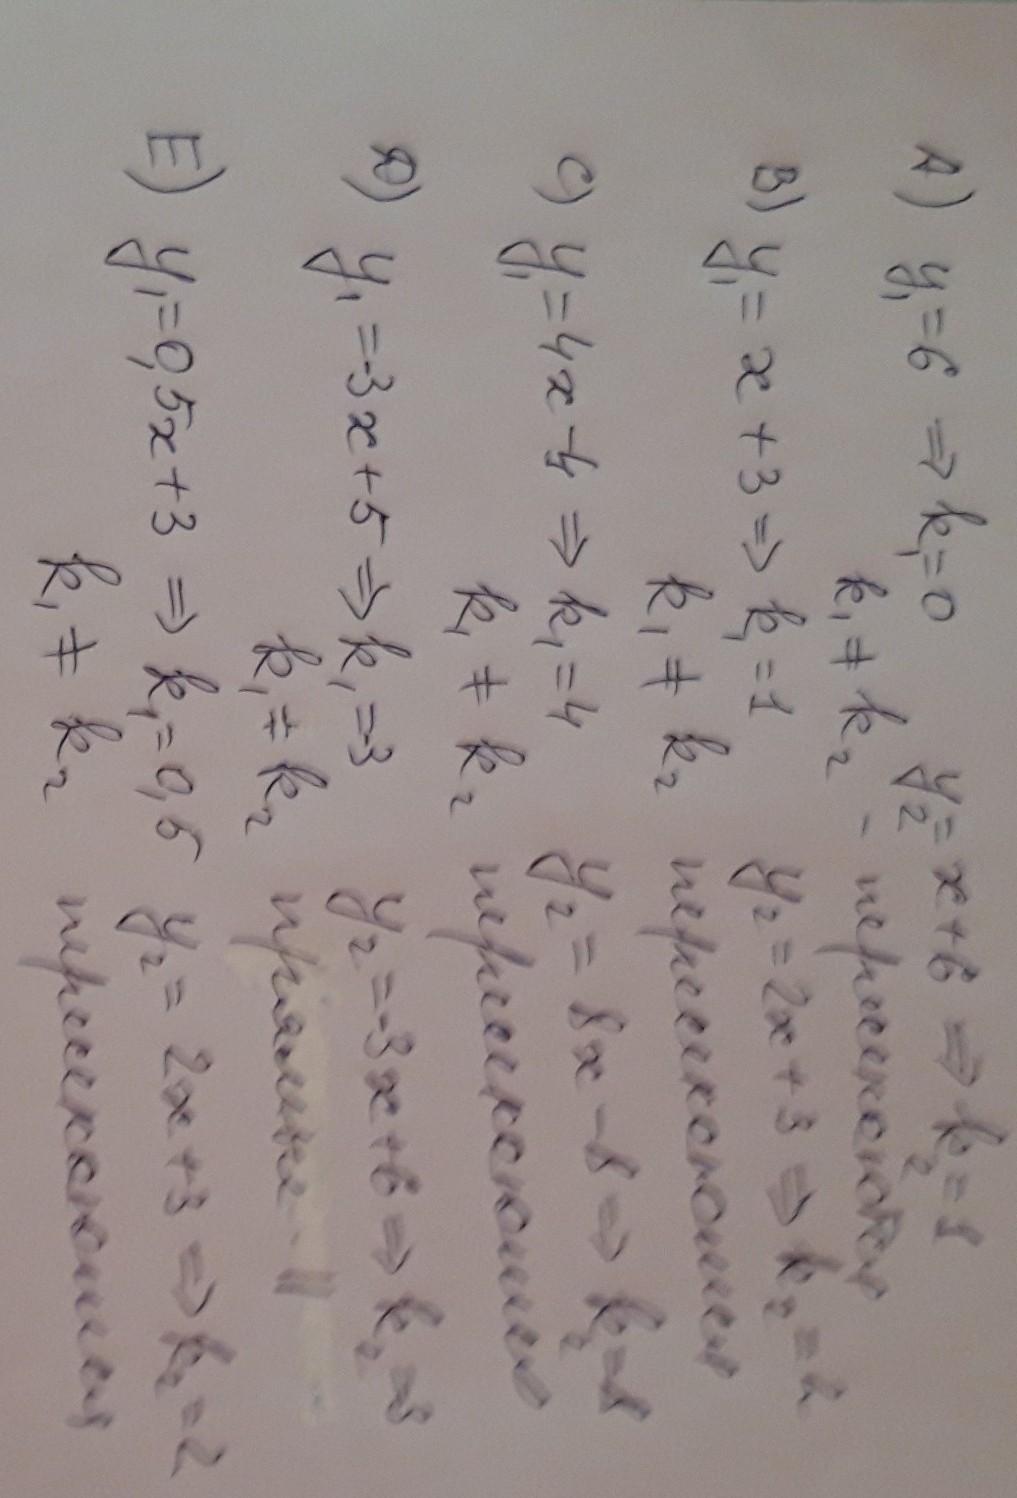 A) y₁ = 6 ⇒ k₁ = 0 y₂ = x + 6 ⇒ k₂ = 1
k₁ ≠ k₂ – пересекаются
B) y₁ = x + 3 ⇒ k₁ = 1 y₂ = 2x + 3 ⇒ k₂ = 2
k₁ ≠ k₂ пересекаются
C) y₁ = 4x - 4 ⇒ k₁ = 4 y₂ = 8x - 8 ⇒ k₂ = 8
k₁ ≠ k₂ пересекаются
D) y₁ = -3x + 5 ⇒ k₁ = -3 y₂ = -3x + 6 ⇒ k₂ = -3
k₁ = k₂ прямые ||
E) y₁ = 0,5x + 3 ⇒ k₁ = 0,5 y₂ = 2x + 3 ⇒ k₂ = 2
k₁ ≠ k₂ пересекаются